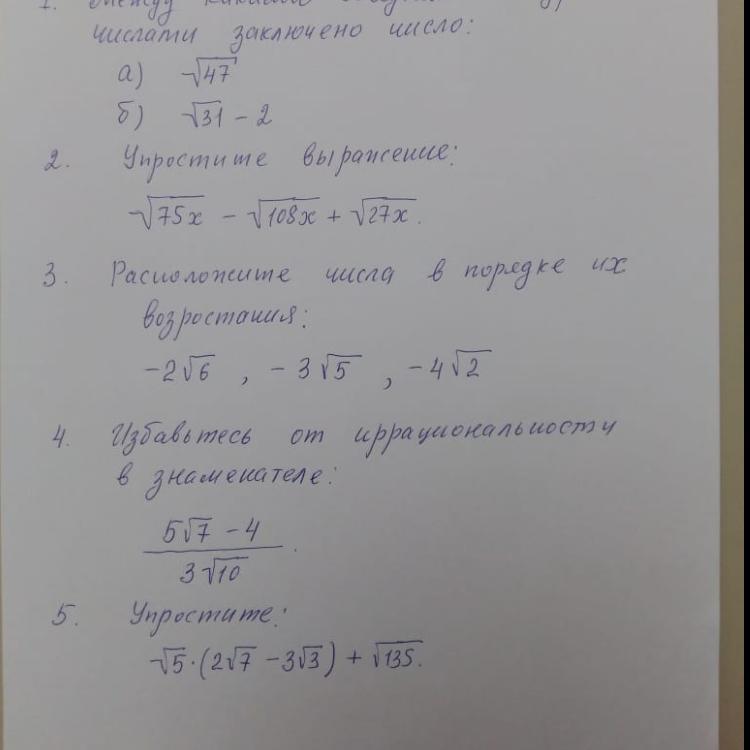 1. Между
числами заключено число:
а) √47
б) √31 - 2
2. Упростите выражение:
√75x - √108x + √27x.
3. Расположите числа в порядке их
возростания:
-2√6 , -3√5 , -4√2
4. Избавьтесь от иррациональности
в знаменателе:
5√7 - 4
3√10 .
5. Упростите:
√5·(2√7 - 3√3) + √135.